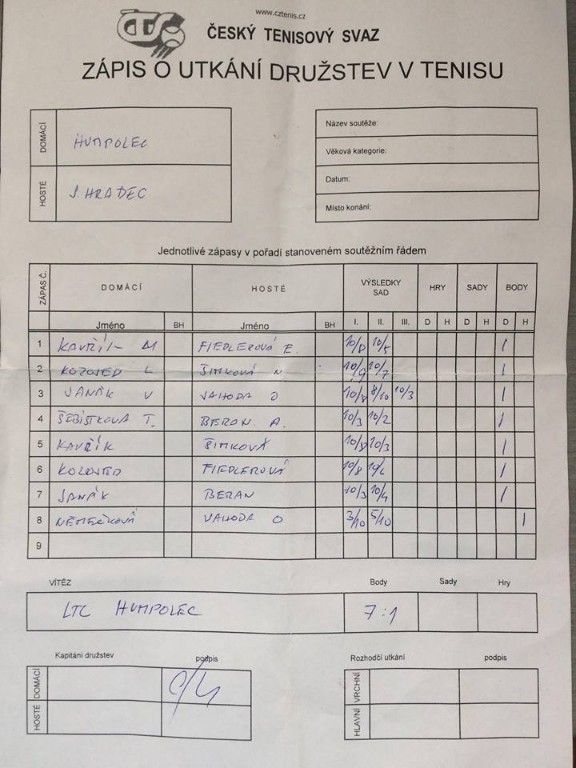 www.cztenis.cz
ČTS
ČESKÝ TENISOVÝ SVAZ
ZÁPIS O UTKÁNÍ DRUŽSTEV V TENISU
DOMÁCÍ HUMPOLEC
HOSTÉ J. HRADEC
Název soutěže:
Věková kategorie:
Datum:
Místo konání:
Jednotlivé zápasy v pořadí stanoveném soutěžním řádem
ZÁPAS Č. DOMÁCÍ HOSTÉ VÝSLEDKY SAD HRY SADY BODY
Jméno BH Jméno BH I. II. III. D H D H D H
1 KAVŘÍK M FIEDLEROVÁ E. 10/5 1
2 L ŠIMKOVÁ N 10/7 1
3 JANÁK V VAHODA O 10/8 8/10 10/3 1
4 ŠEBÍSTKOVÁ T. BERAN A. 10/3 10/2 1
5 KAVŘÍK ŠIMKOVÁ 10/3 1
6 FIEDLEROVÁ 10/8 1
7 JANÁK BERAN 10/3 10/4 1
8 NĚMEČKOVÁ VAHODA O 3/10 5/10 1
9
VÍTĚZ Body Sady Hry
LTC HUMPOLEC 7:1
Kapitání družstev podpis
DOMÁCÍ
HOSTÉ
Rozhodčí utkání podpis
VRCHNÍ
HLAVNÍ